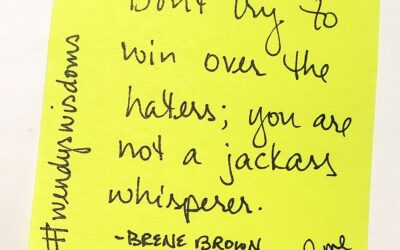 Don't try to
win over the
haters; you are
not a jackass
whisperer.
-BRENE BROWN
#wendyswisdoms